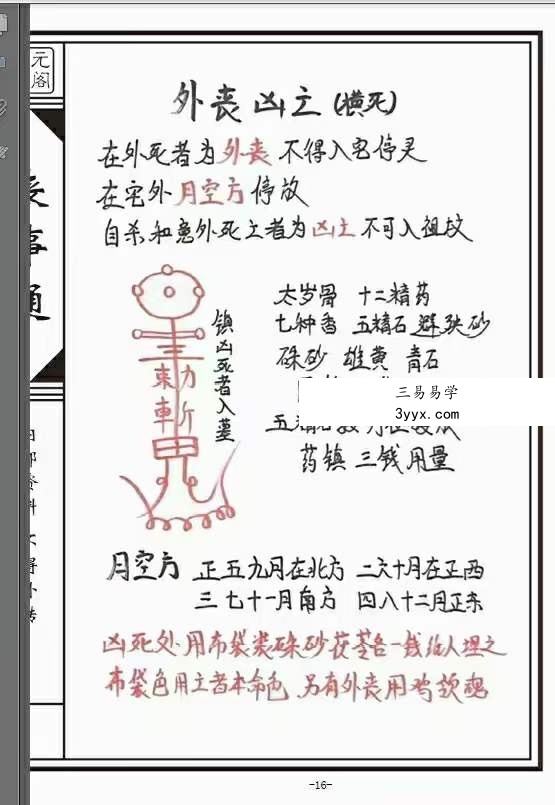 元
阁
丧
事
通
内
部
资
料
不
得
外
传
外丧凶亡(横死)
在外死者为外丧 不得入宅停灵
在宅外月空方停放
自杀和意外死亡者为凶亡 不可入祖坟
镇凶死者入墓
束力
斬
太岁骨 十二精药
七种香 五精石 避殃砂
硃砂 雄黄 青石
三易易学
3yyx.com
药镇 三钱用量
月空方 正五九月在北方 二六十月在正西
三七十一月南方 四八十二月正东
凶死处用布袋装硃砂茯苓各一钱 人埋之
布袋色用亡者本命色 另有外丧用鸡 魂
-16-